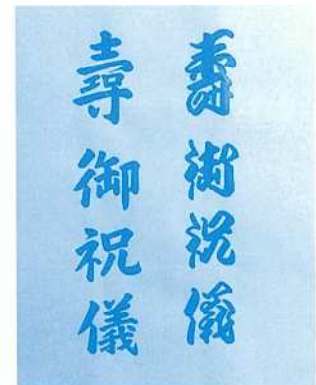 壽御祝儀
壽御祝儀